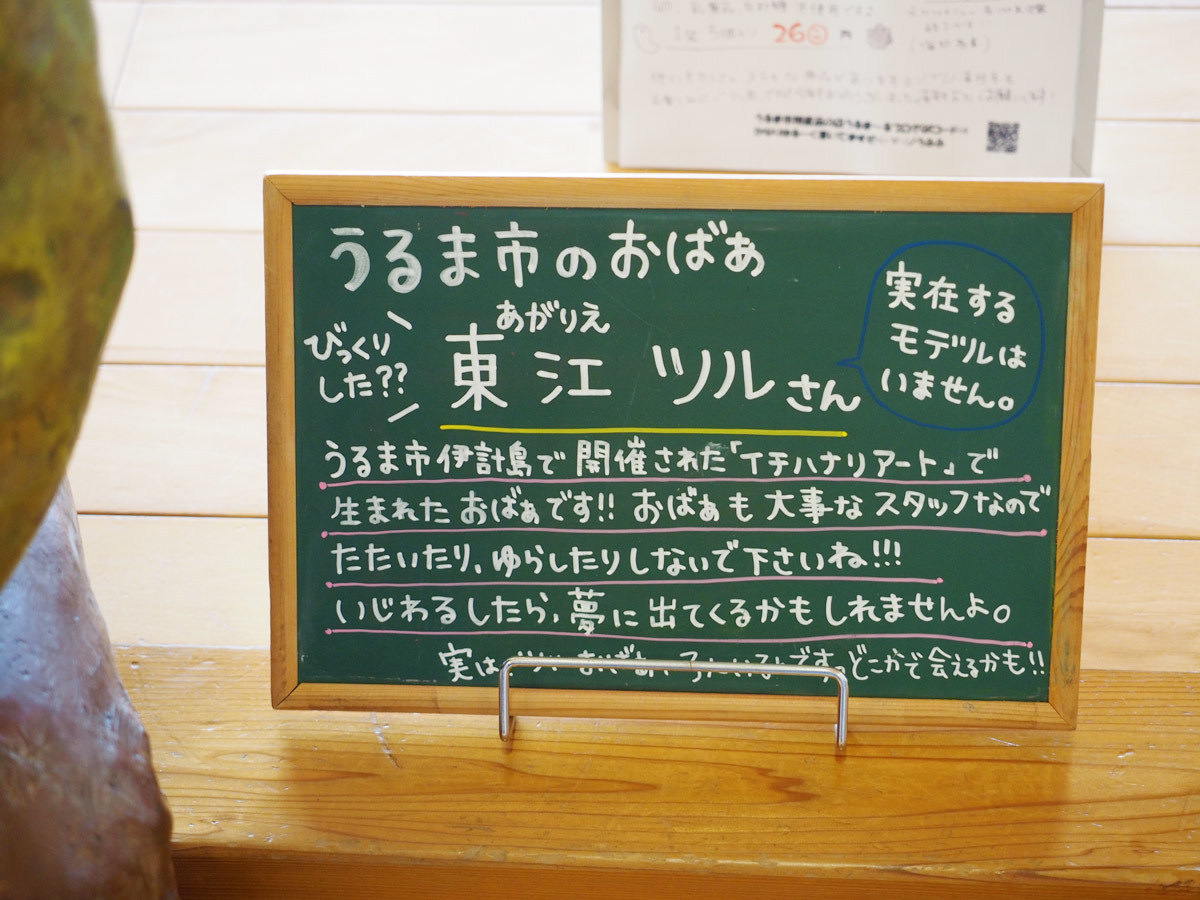 26
うるま市のおばぁ
びっくり
した??
あがりえ
東江 ツルさん
実在する
モデルは
いません。
うるま市伊計島で開催された「イチハナリアート」で
生まれたおばぁです!! おばぁも大事なスタッフなので
たたいたり、ゆらしたりしないで下さいね!!!
いじわるしたら、夢に出てくるかもしれませんよ。
実は です。どこかで会えるかも!!